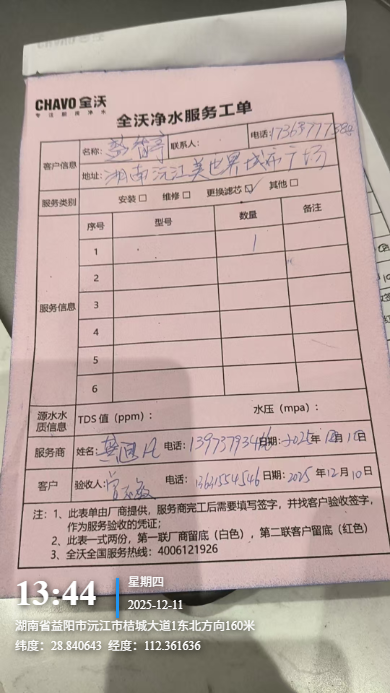 CHAVO 全沃
专注厨房净水
全沃净水服务工单
客户信息 名称： 联系人： 电话：
地址：湖南沅江美世界城市广场
服务类别 安装□ 维修□ 更换滤芯☑ 其他□
服务信息 序号 型号 数量 备注
1 1
2
3
4
5
6
源水水质信息 TDS 值（ppm）： 水压（mpa）：
服务商 姓名： 电话： 日期：2025年12月10日
客户 验收人： 电话：13631554546 日期：2025年12月10日
注：1、此表单由厂商提供，服务商完工后需要填写签字，并找客户验收签字，
作为服务验收的凭证；
2、此表一式两份，第一联厂商留底（白色），第二联客户留底（红色）
3、全沃全国服务热线：4006121926
13:44 星期四
2025-12-11
湖南省益阳市沅江市桔城大道1东北方向160米
纬度：28.840643 经度：112.361636